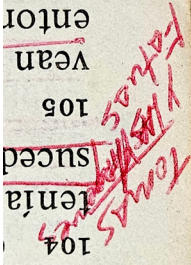 104
tenía
suced
105
vean
enton
TOMAS
Y LAS
FATUAS